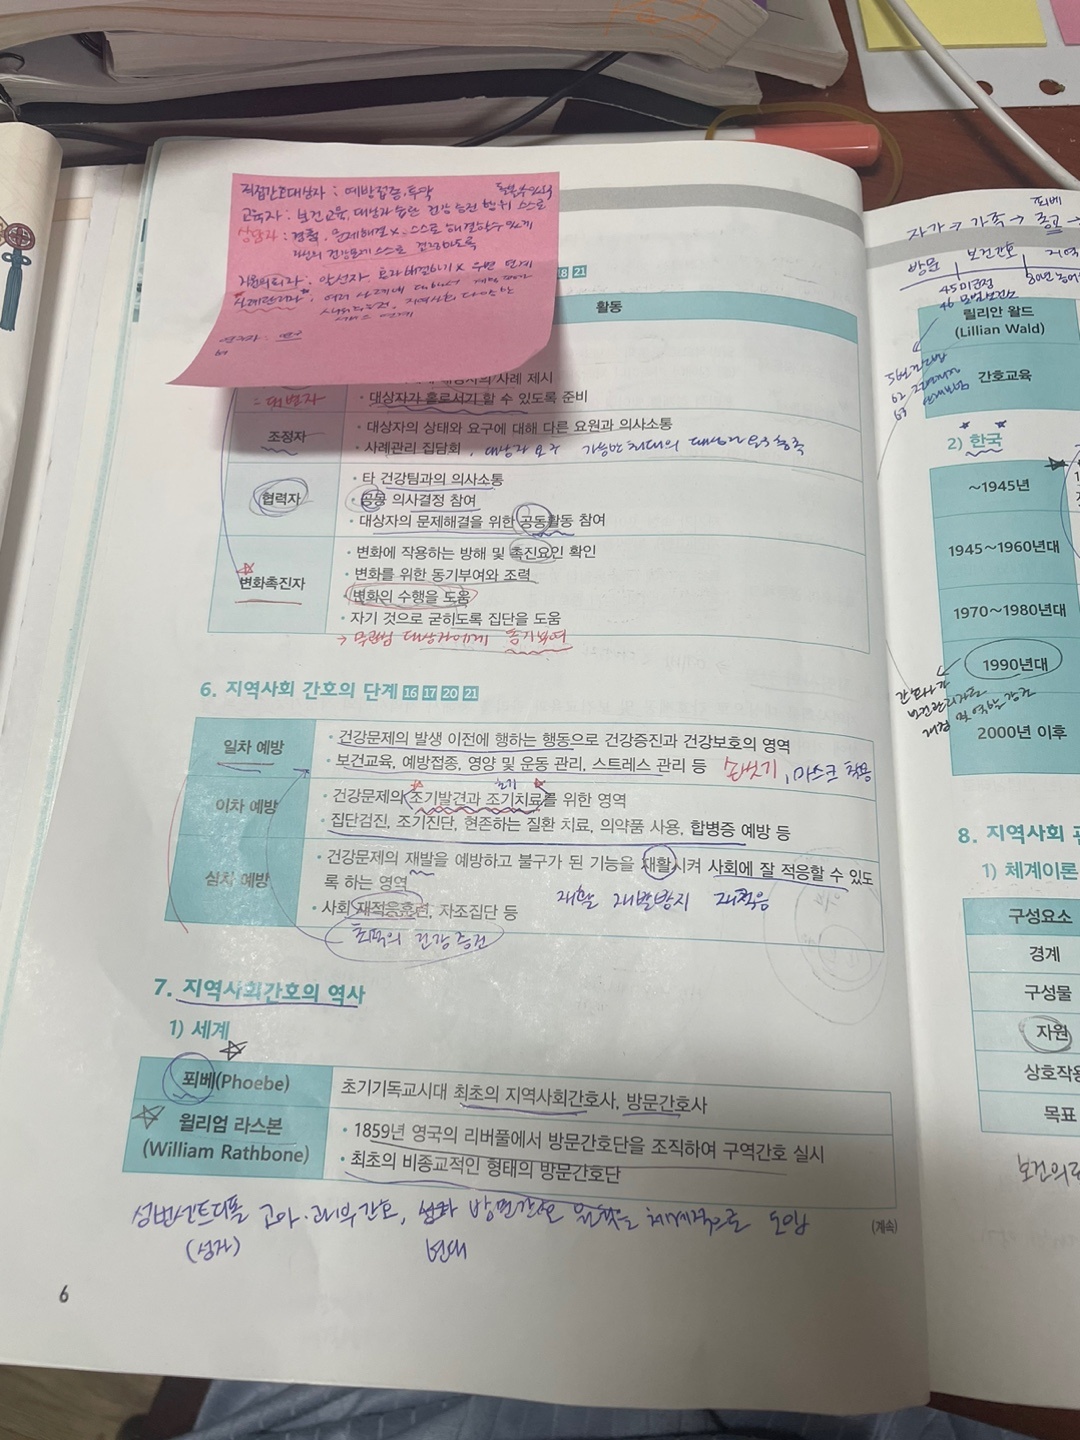 직접간호대상자 : 예방접종, 투약
교육자 : 보건교육, 대상자 건강 증진 행위 스스로
상담자 : 문제해결 X. 스스로 해결할 수 있게
자신의 건강문제 스스로
우편 연계
21
활동
사례 제시
= 대변자
• 대상자가 홀로서기 할 수 있도록 준비
조정자
• 대상자의 상태와 요구에 대해 다른 요원과 의사소통
• 사례관리 집담회, 대상자 요구 최대의 대상자 요구 충족
협력자
• 타 건강팀과의 의사소통
• 공동 의사결정 참여
• 대상자의 문제해결을 위한 공동활동 참여
변화촉진자
• 변화에 작용하는 방해 및 촉진요인 확인
• 변화를 위한 동기부여와 조력
• 변화의 수행을 도움
• 자기 것으로 굳히도록 집단을 도움
→ 대상자에게 동기부여
6. 지역사회 간호의 단계 16 17 20 21
일차 예방
• 건강문제의 발생 이전에 행하는 행동으로 건강증진과 건강보호의 영역
• 보건교육, 예방접종, 영양 및 운동 관리, 스트레스 관리 등 손씻기, 마스크 착용
이차 예방
초기
• 건강문제의 조기발견과 조기치료를 위한 영역
• 집단검진, 조기진단, 현존하는 질환 치료, 의약품 사용, 합병증 예방 등
삼차 예방
• 건강문제의 재발을 예방하고 불구가 된 기능을 재활시켜 사회에 잘 적응할 수 있도
록 하는 영역
재활 재발방지 재적응
• 사회 재적응훈련, 자조집단 등
최적의 건강증진
7. 지역사회간호의 역사
1) 세계
푀베(Phoebe)
초기기독교시대 최초의 지역사회간호사, 방문간호사
윌리엄 라스본
(William Rathbone)
• 1859년 영국의 리버풀에서 방문간호단을 조직하여 구역간호 실시
• 최초의 비종교적인 형태의 방문간호단
고아·과부간호, 방문간호 원칙을 체계적으로 도입
(성자)
(계속)
6
푀베
자가 → 가족 → 종교 →
방문 보건간호 지역
45 미군정
46 모범보건소
릴리안 왈드
(Lillian Wald)
간호교육
2) 한국
~1945년
1945~1960년대
1970~1980년대
1990년대
2000년 이후
8. 지역사회 간
1) 체계이론
구성요소
경계
구성물
자원
상호작용
목표
보건의료